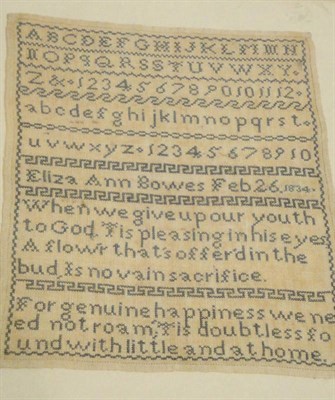 ABCDEFGHIJKLMN
NOPQRSSTUVWXY.
Z&.123456789101112.
abcdefghijklmnopqrst.
uvwxyz.12345678910
Eliza Ann Bowes Feb 26. 1834.
When we give up our youth
to God, Tis pleasing in his eyes
A flow'r that's offer'd in the
bud, Is no vain sacrifice.
For genuine happiness we ne
ed not roam, Tis doubtless fo
und with little and at home.